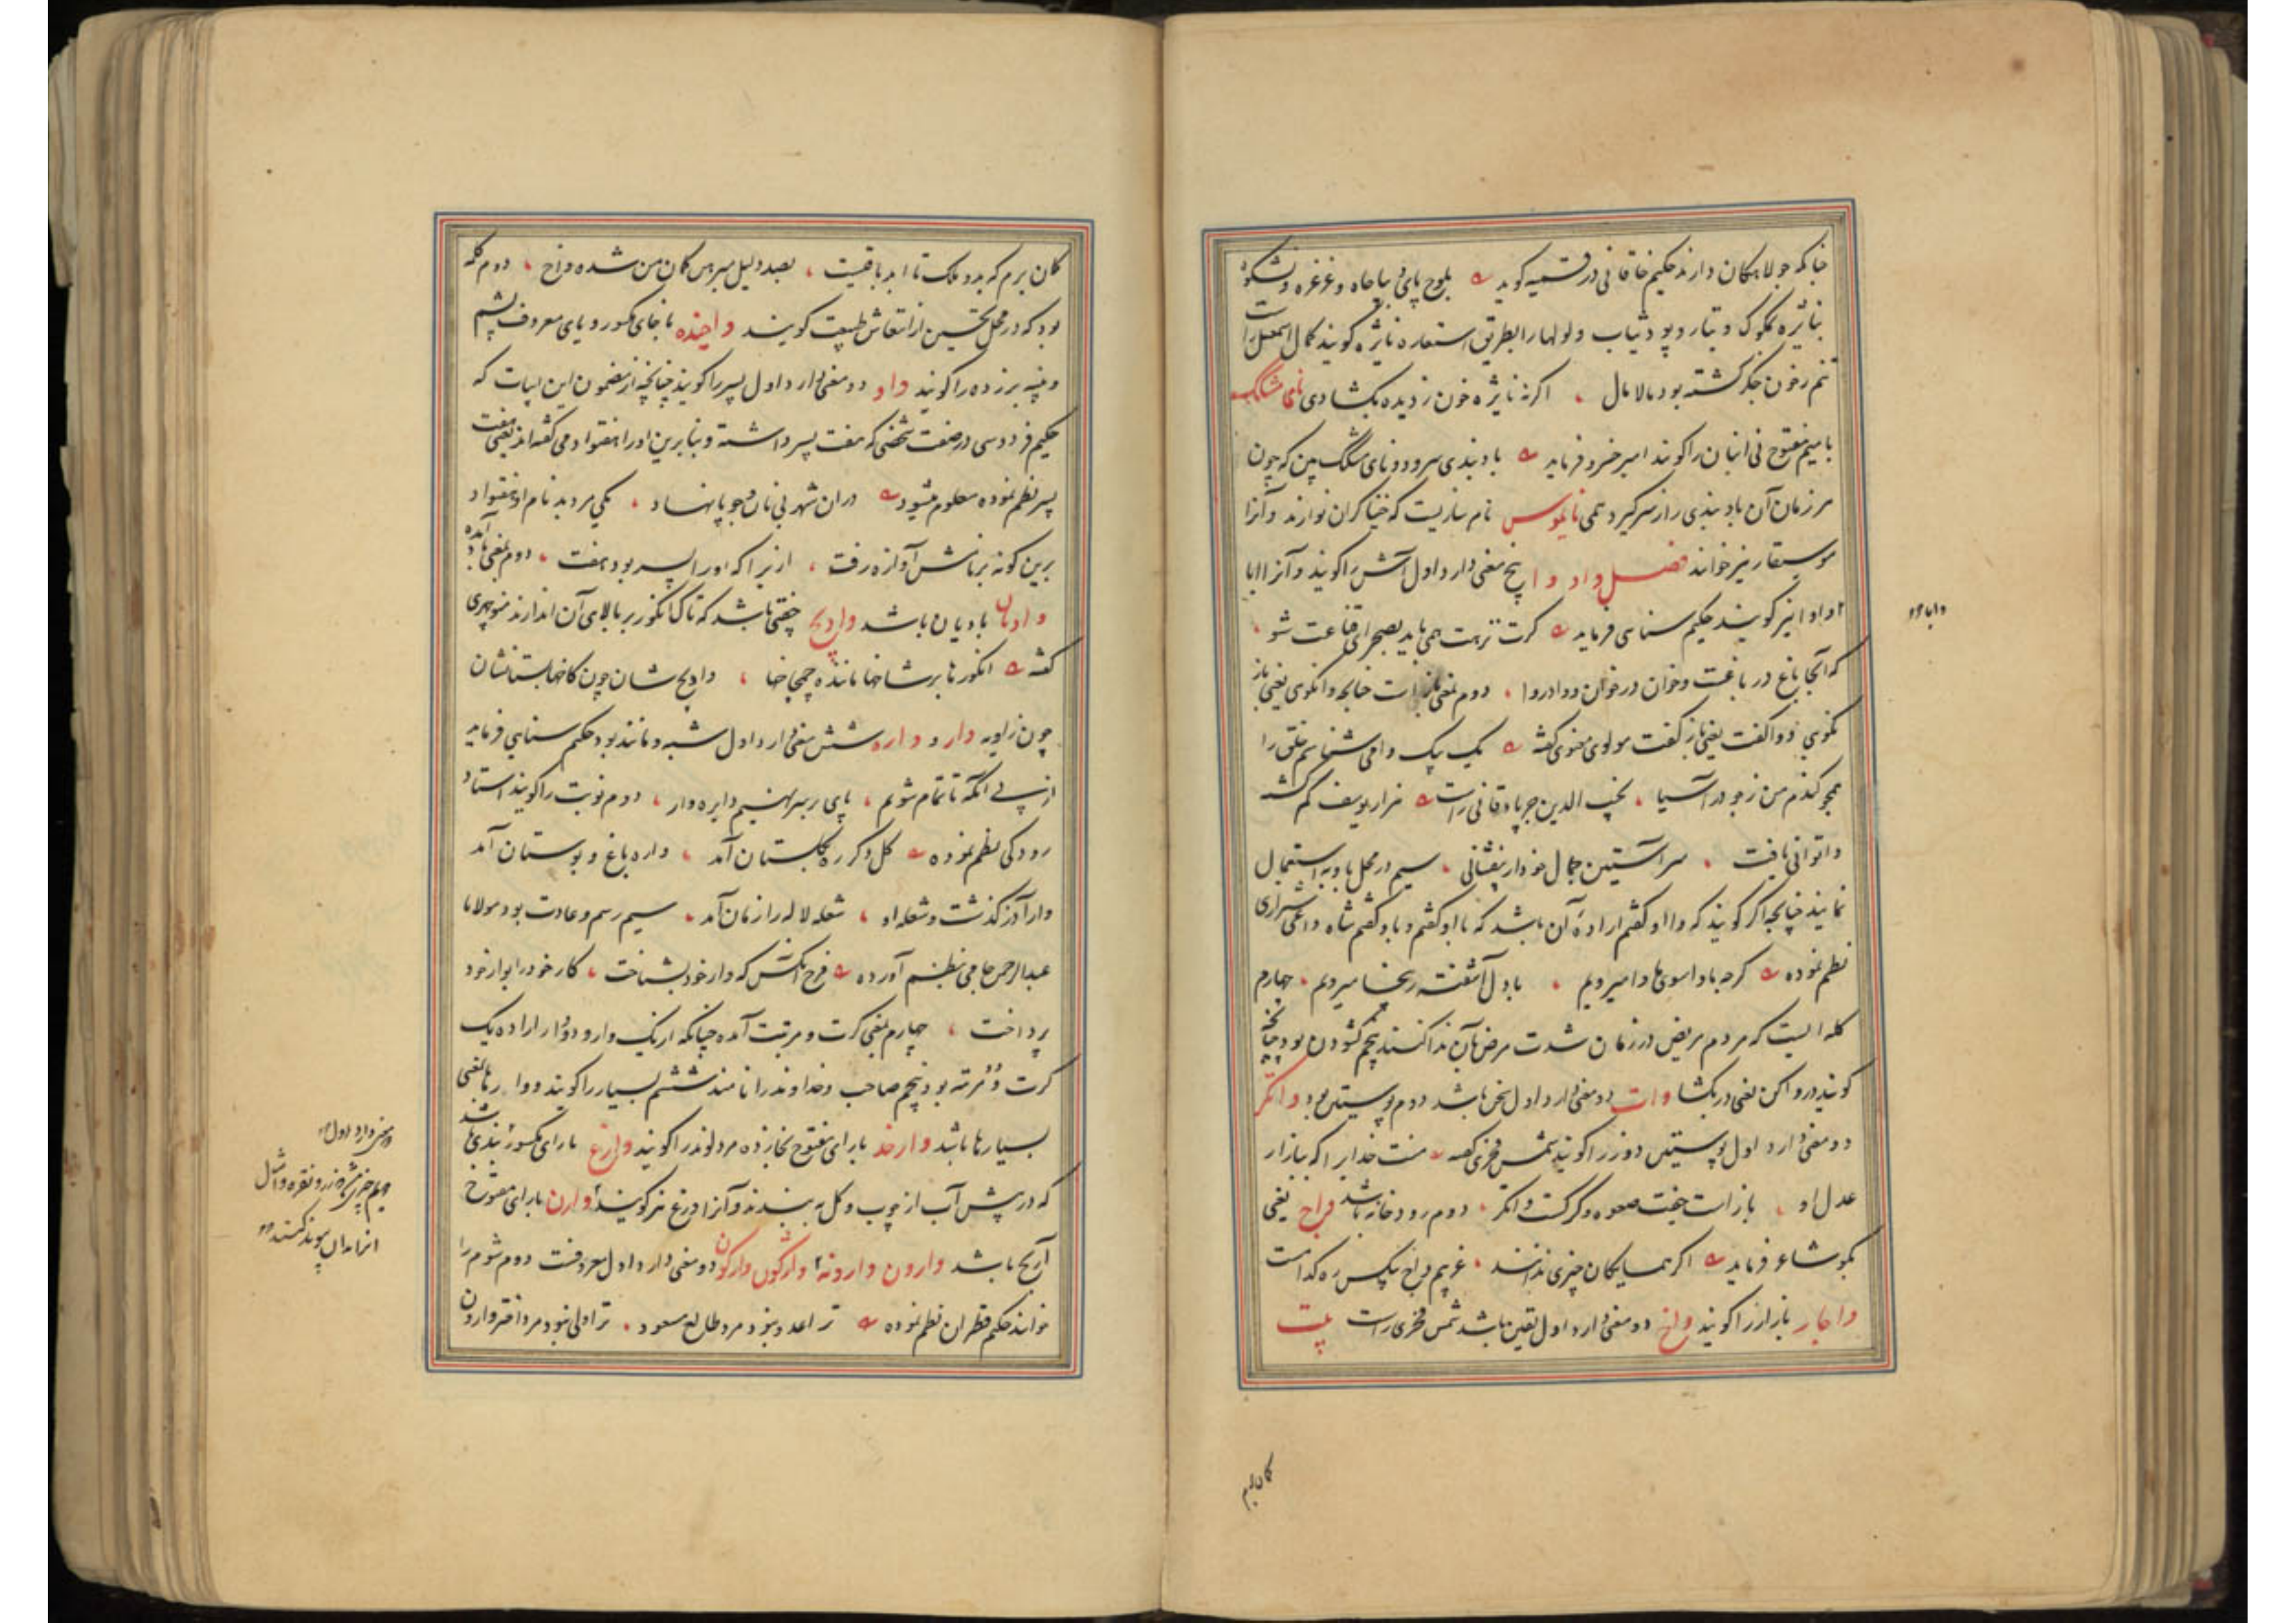 چنانکه جولاهکان دارند حکیم خاقانی در قسمیه گوید بلوح پای و پاچاه و غرغره و نشکوه
بنایژه بمکوک و بتار و پود ثیاب و لولها را بطریق استعاره نایژه گویند کمال اسمعیل راست
تنم ز خون جگر گشته بود مالامال اگر نه نایژه خون ز دیده بگشادی نای مشک
با میم مفتوح نی انبان را گویند امیر خسرو فرماید باد بندی سرود و نای مشک بین که چون
هر زمان آن باد بندی را ز سر گیرد همی نایموس نام سازیست که خنیاگران نوازند و آنرا
موسیقار نیز خوانند فصل واو وا پنج معنی دارد اول آش را گویند و آنرا ابا
و اوا نیز گویند حکیم سنائی فرماید گرت نزهت همی باید بصحرای قناعت شو
که آنجا باغ در باغست و خوان در خوان و وا در وا دوم بمعنی باز است چنانچه وانگوی یعنی باز
نگوی و واگفت یعنی باز گفت مولوی معنوی گفته یک بیک وا می شناسم خلق را
همچو گندم من ز جو در آسیا نجیب الدین جرباذقانی راست هزار یوسف گم گشته
وا توانی یافت سر آستین جمال خود ار بیفشانی سیم در محل با و به استعمال
نمایند چنانچه اگر گویند که وا او گفتم اراده آن باشد که با او گفتم و باو گفتم شاه داعی شیرازی
نظم نموده گرچه باد آسوی ها وا میرویم با دل آشفته ریخا میرویم چهارم
کلمه ایست که مردم مریض در زمان شدت مرض آن ندا کنند پنجم گشودن بود چنانچه
گویند در وا کن یعنی در بگشا وات دو معنی دارد اول سخن باشد دوم پوستین بود واتگر
دو معنی دارد اول پوستین دوز را گویند شمس فخری گفته منت خدایرا که ببازار
عدل او باز است جفت صعوه و گرگست واتگر دوم رودخانه باشد واج یعنی
بگو شاعر فرماید اگر همسایگان چیزی ندانند غریبم واج بیکس ره کدامست
واجار بازار را گویند واخ دو معنی دارد اول یقین باشد شمس فخری راست بیت
وابا
گمان برم
گمان برم که بدو ملک تا ابد باقیست بصد دلیل مبرهن گمان من شده واخ دوم کلمه
بود که در محل تحسین از انتعاش طبیعت گویند واخیده با خای مکسور و یای معروف پشم
و پنبه برزده را گویند واد دو معنی دارد اول پسر را گویند چنانچه از مضمون این ابیات که
حکیم فردوسی در صفت شخصی که هفت پسر داشته و بنابرین او را هفتواد می گفته اند یعنی هفت
پسر نظم نموده معلوم میشود دران شهر بی نان و جو پانهاد یکی مرد بد نام او هفتواد
برین گونه بر نامش آوازه رفت ازیرا که او را پسر بود هفت دوم بمعنی باد آمده
وادیان بادیان باشد وادیج خفتی باشد که تاک انگور بر بالای آن اندازند منوچهری
گفته انگورها بر شاخها مانند چمچاخها وادیج شان چون کاخها بستانشان
چون زاویه وار و واره شش معنی دارد اول شبه و مانند بود حکیم سنایی فرماید
از پی آنکه تا تمام شویم پای بر سر نهیم دایره وار دوم نوبت را گویند استاد
رودکی نظم نموده گل دگر ره بگلستان آمد واره باغ و بوستان آمد
وار آذر گذشت و شعله او شعله لاله را زمان آمد سیم رسم و عادت بود مولانا
عبدالرحمن جامی بنظم آورده فرخ آنکس که وار خود بشناخت کار خود را بوار خود
پرداخت چهارم بمعنی کرت و مرتبت آمده چنانکه ار یک وار و دو وار اراده یک
کرت و دو مرتبه بود پنجم صاحب و خداوند را نامند ششم بسیار را گویند و وارها بمعنی
بسیارها باشد وارخد با رای مفتوح بخا زده مرد لوند را گویند وارغ با رای مکسور بندی باشد
که در پیش آب از چوب و گل به بندند و آنرا ورغ نیز گویند وارن با رای مفتوح
آرنج باشد وارون وارونه واژگون وارگون دو معنی دارد اول معروفست دوم شوم را
خوانند حکیم قطران نظم نموده ترا عدو نبود مرد طالع مسعود ترا ولی نبود مرد اختر وارون